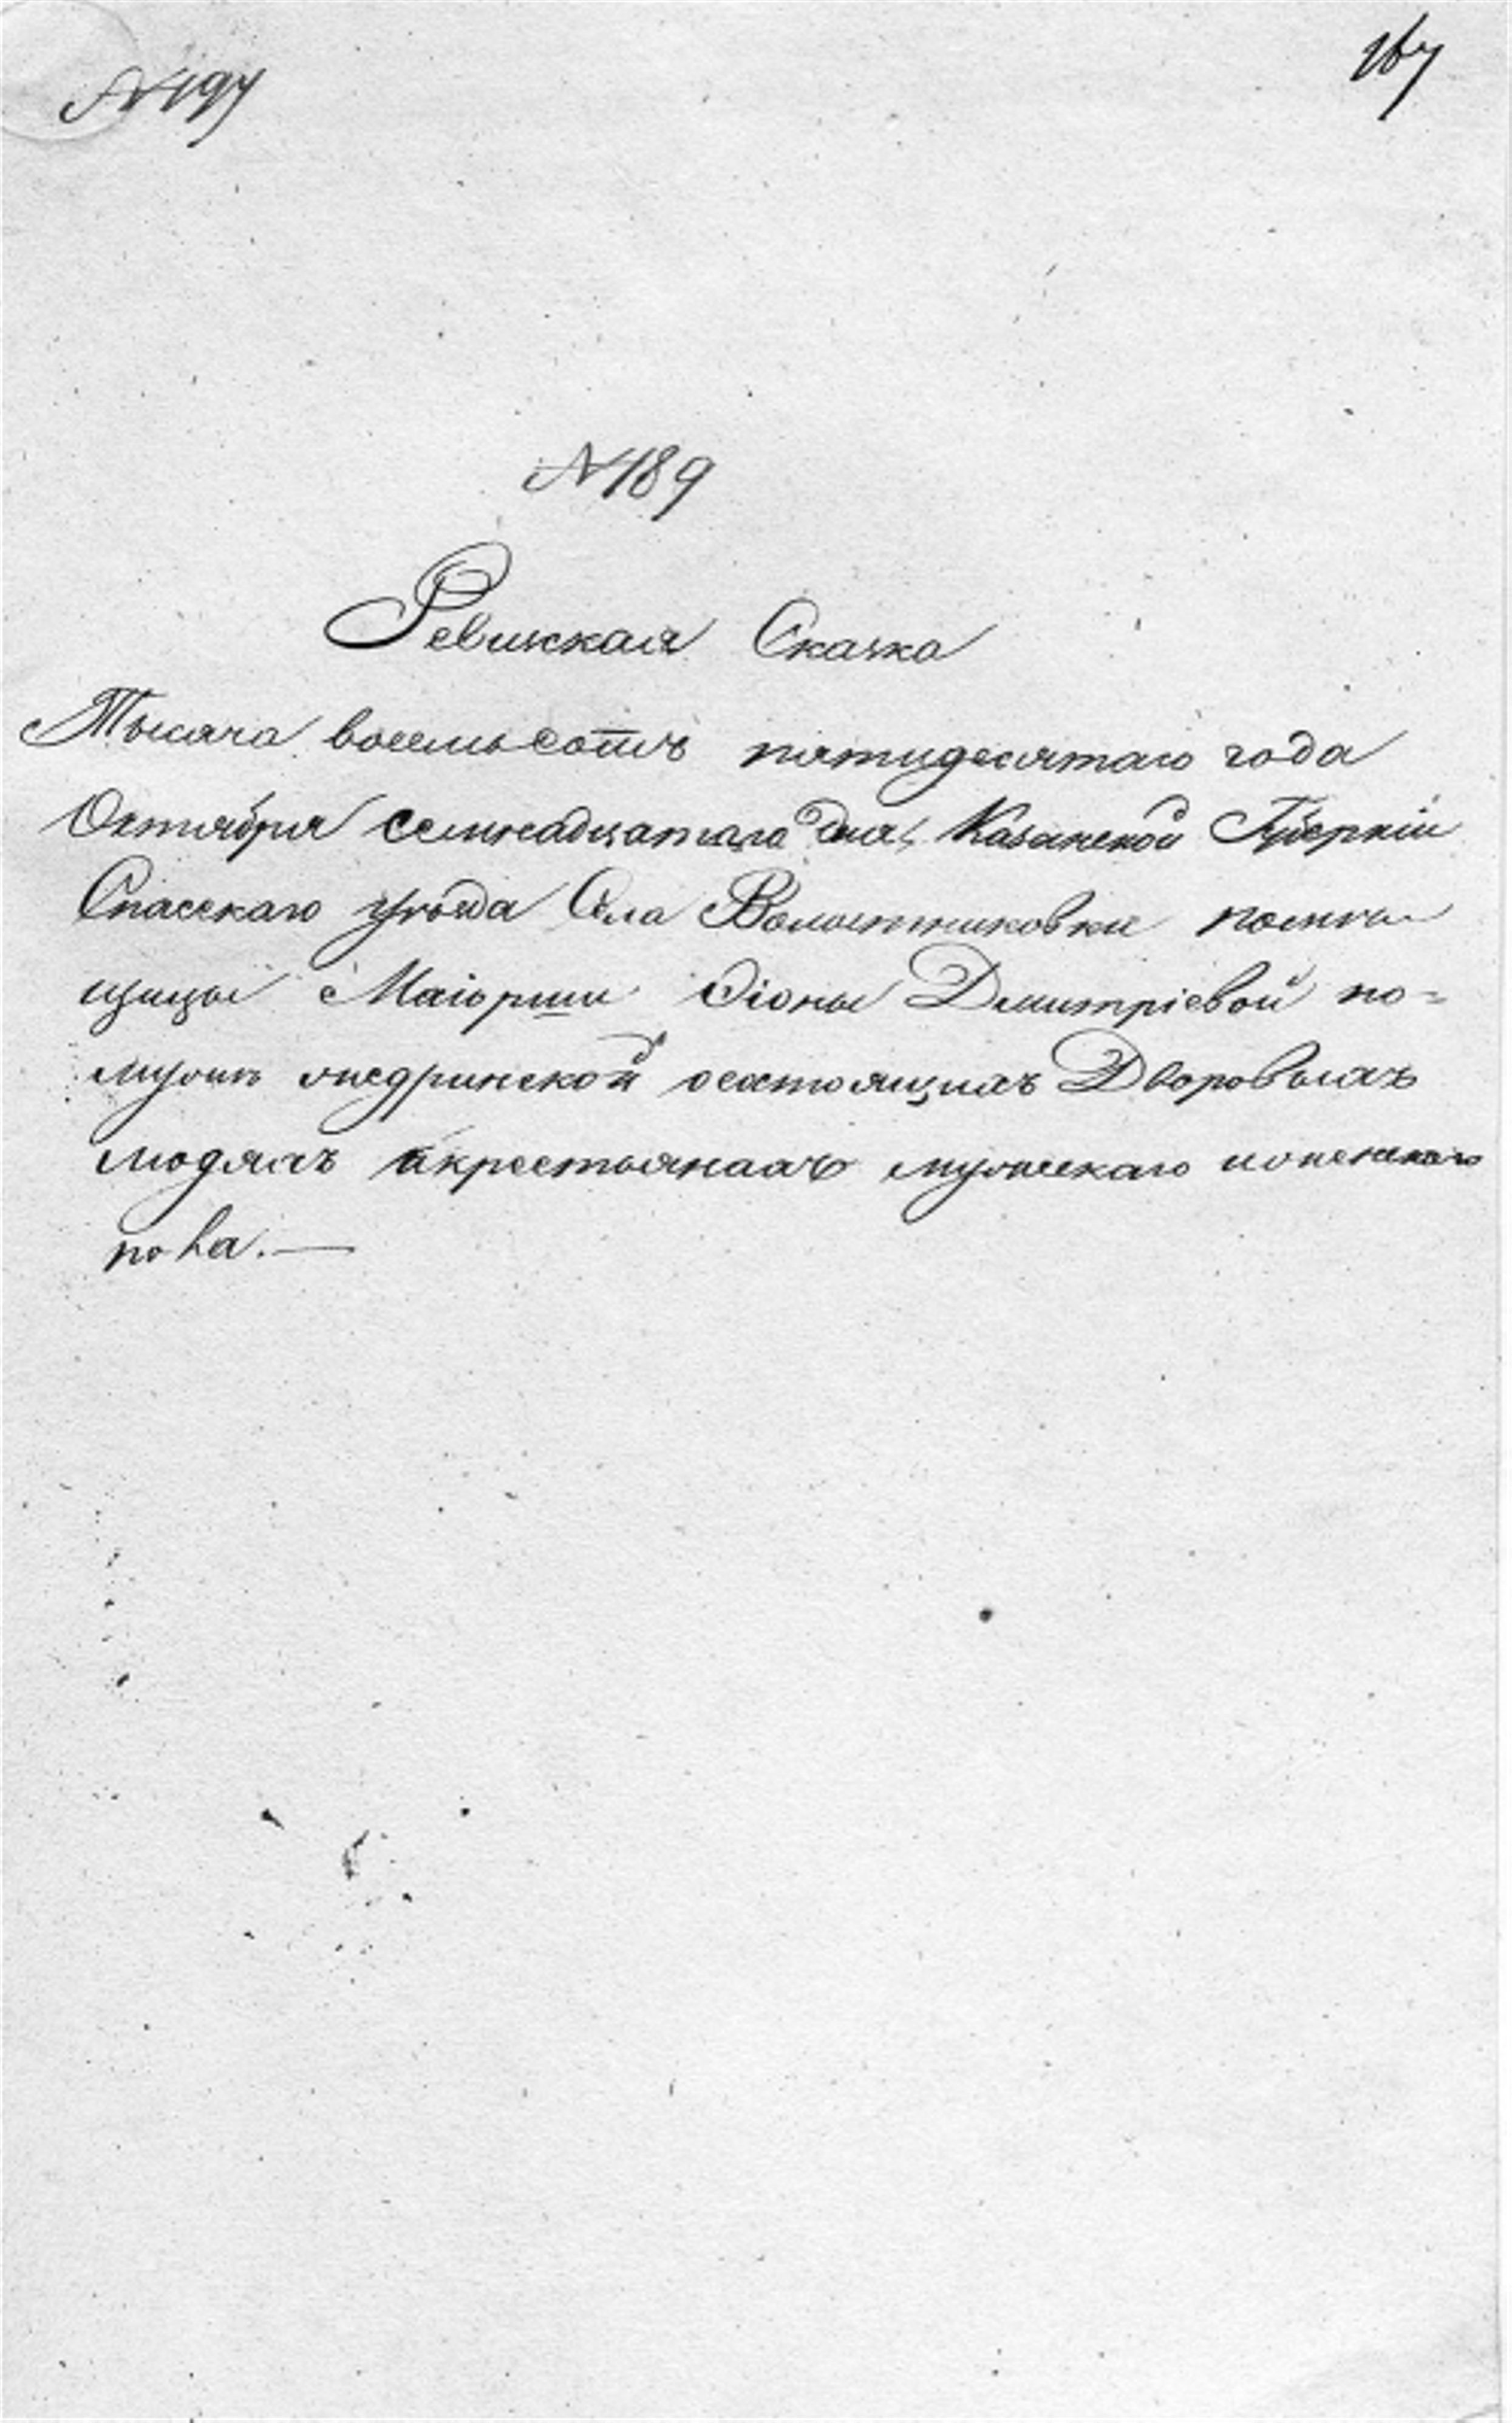 N 197
167
N 189
Ревижская Сказка
Тысяча восемьсотъ пятидесятаго года
Октября семнадцатаго дня, Казанской Губерніи
Спасскаго уѣзда Села Волостниковки помѣ
щицы Маіорши Діоны Дмитріевой по=
мужѣ осостоящихъ Дворовыхъ
людяхъ икрестьянахъ мужескаго иоженскаго
пола.—